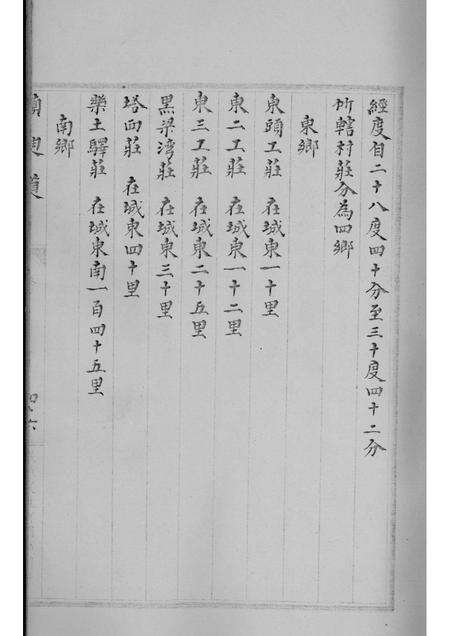 經度自二十八度四十分至三十度四十二分
所轄村莊分為四鄉
東鄉
東頭工莊 在城東一十里
東二工莊 在城東一十二里
東三工莊 在城東二十五里
黑梁灣莊 在城東三十里
塔西莊 在城東四十里
樂土驛莊 在城東南一百四十五里
南鄉